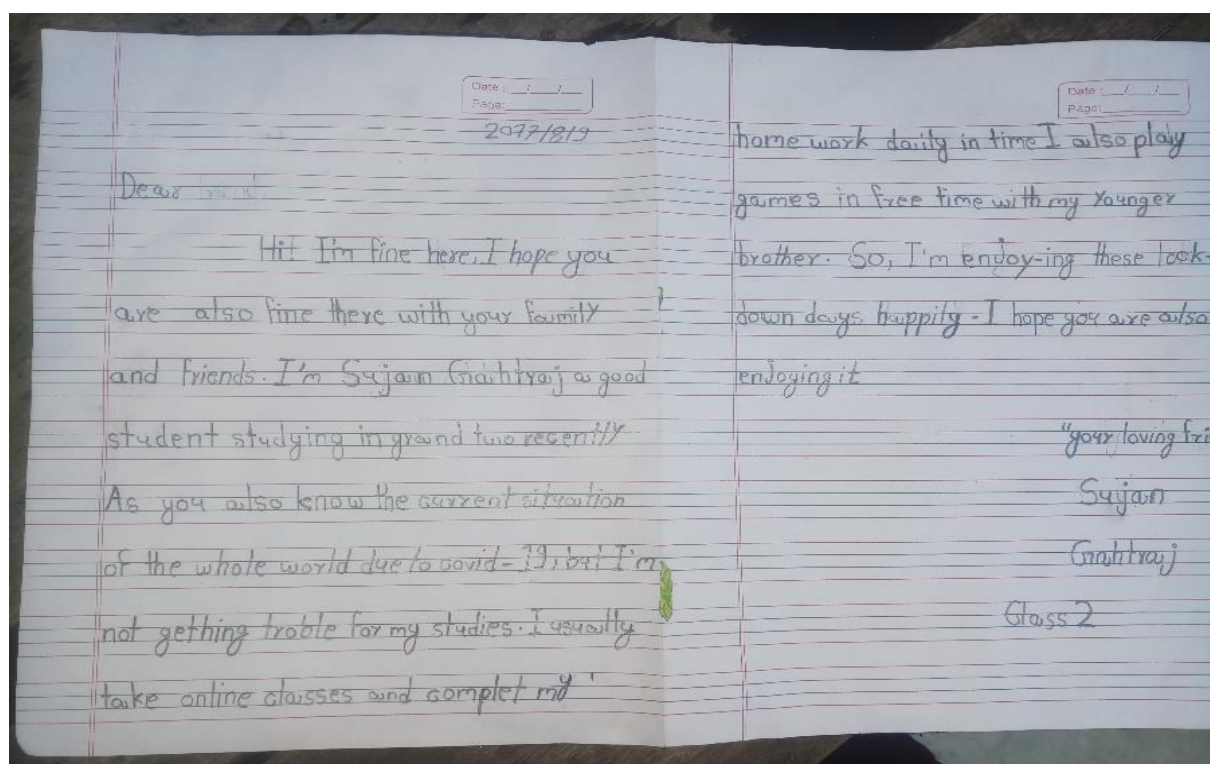 Date : / /
Page:
2077/8/9
Dear
Hi! I'm fine here, I hope you
are also fine there with your family
and friends. I'm Sujan Gahtraj a good
student studying in grand two recently
As you also know the current situation
of the whole world due to covid-19, but I'm
not gething troble for my studies. I usually
take online classes and complet my
Date : / /
Page:
home work daily in time I also play
games in free time with my Younger
brother. So, I'm enjoy-ing these lock-
down days happily - I hope you are also
enjoying it
"your loving fri
Sujan
Gahtraj
Class 2